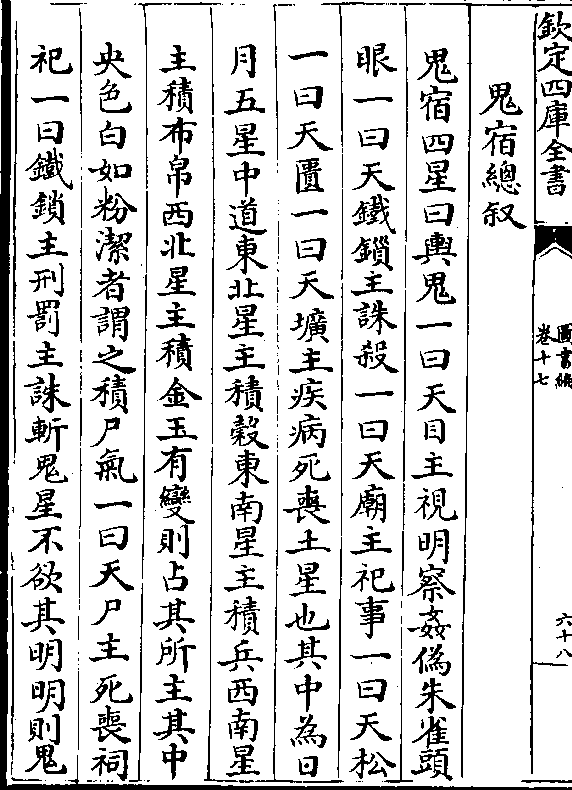 欽定四庫全書
圖書編
卷十七
六十八
鬼宿總叙
鬼宿四星曰輿鬼一曰天目主視明察姦偽朱雀頭
眼一曰天鐵鎻主誅殺一曰天廟主祀事一曰天松
一曰天匱一曰天壙主疾病死喪土星也其中為日
月五星中道東北星主積穀東南星主積兵西南星
主積布帛西北星主積金玉有變則占其所主其中
央色白如粉潔者謂之積尸氣一曰天尸主死喪祠
祀一曰鐵鎖主刑罰主誅斬鬼星不欲其明明則鬼